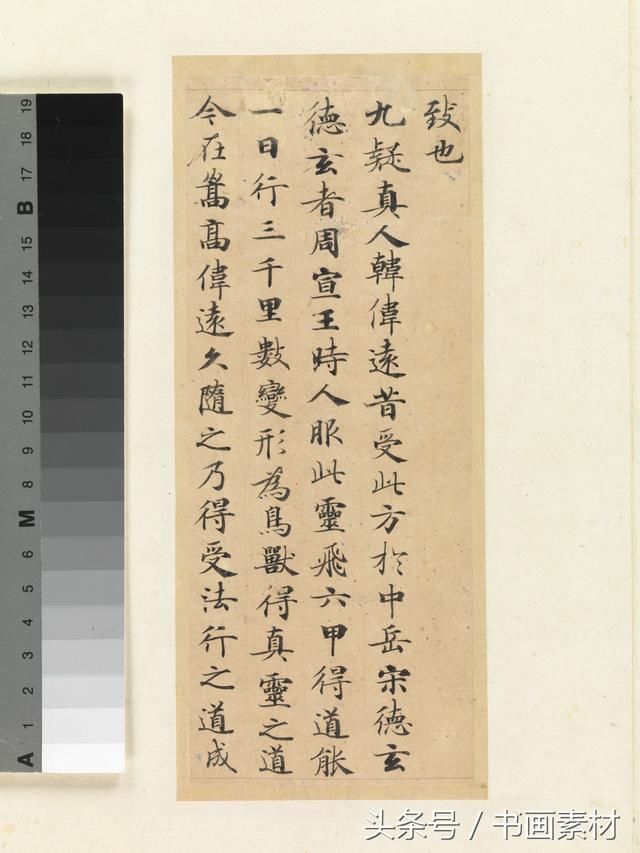 致也
九疑真人韓偉遠昔受此方於中岳宋德玄
德玄者周宣王時人服此靈飛六甲得道能
一日行三千里數變形為鳥獸得真靈之道
今在嵩高偉遠久隨之乃得受法行之道成
19
18
17
B
15
14
13
12
11
10
9
8
M
6
5
4
3
2
1
A
头条号 / 书画素材